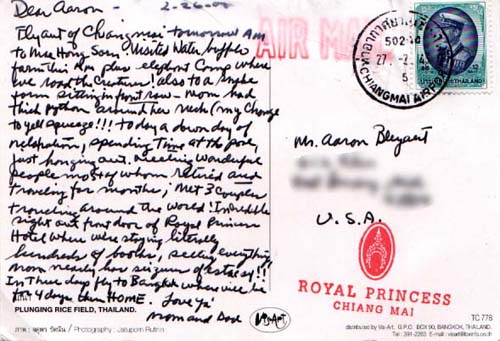 Dear Aaron – 2-26-07
Flyout of Chiangmai tomorrow AM
to Mae Hong Son, Visited Water buffalo
farm this AM plus elephant Camp where
we rode the creatures! also to a snake
farm sitting in front row - mom had
thick python around her neck (my chance
to yell squeeze!!! today a down day of
relaxation, spending time at the pool,
just hanging out. Meeting wonderful
people most of whom retired and
traveling for months, met 3 couples
traveling around the world! Incredible
sight out front door of Royal Princess
Hotel where we're staying literally
hundreds of booths, seeing everything
mom nearly has seizures of ecstasy!!
In three days fly to Bangkok where we'll be
for 4 days then HOME. Love ya'
Mom and Dad
PLUNGING RICE FIELD, THAILAND.
ภาพ : จตุพร รัตนิน / Photography : Jatuporn Rutnin
AIR MAIL
502
27
CHIANGMAI
THAILAND
Mr. Aaron Bleyaert
U.S.A.
ROYAL PRINCESS
CHIANG MAI
Vis-Art
TC 778
distributed by Vis-Art. G.P.O. BOX 90, BANGKOK, THAILAND.